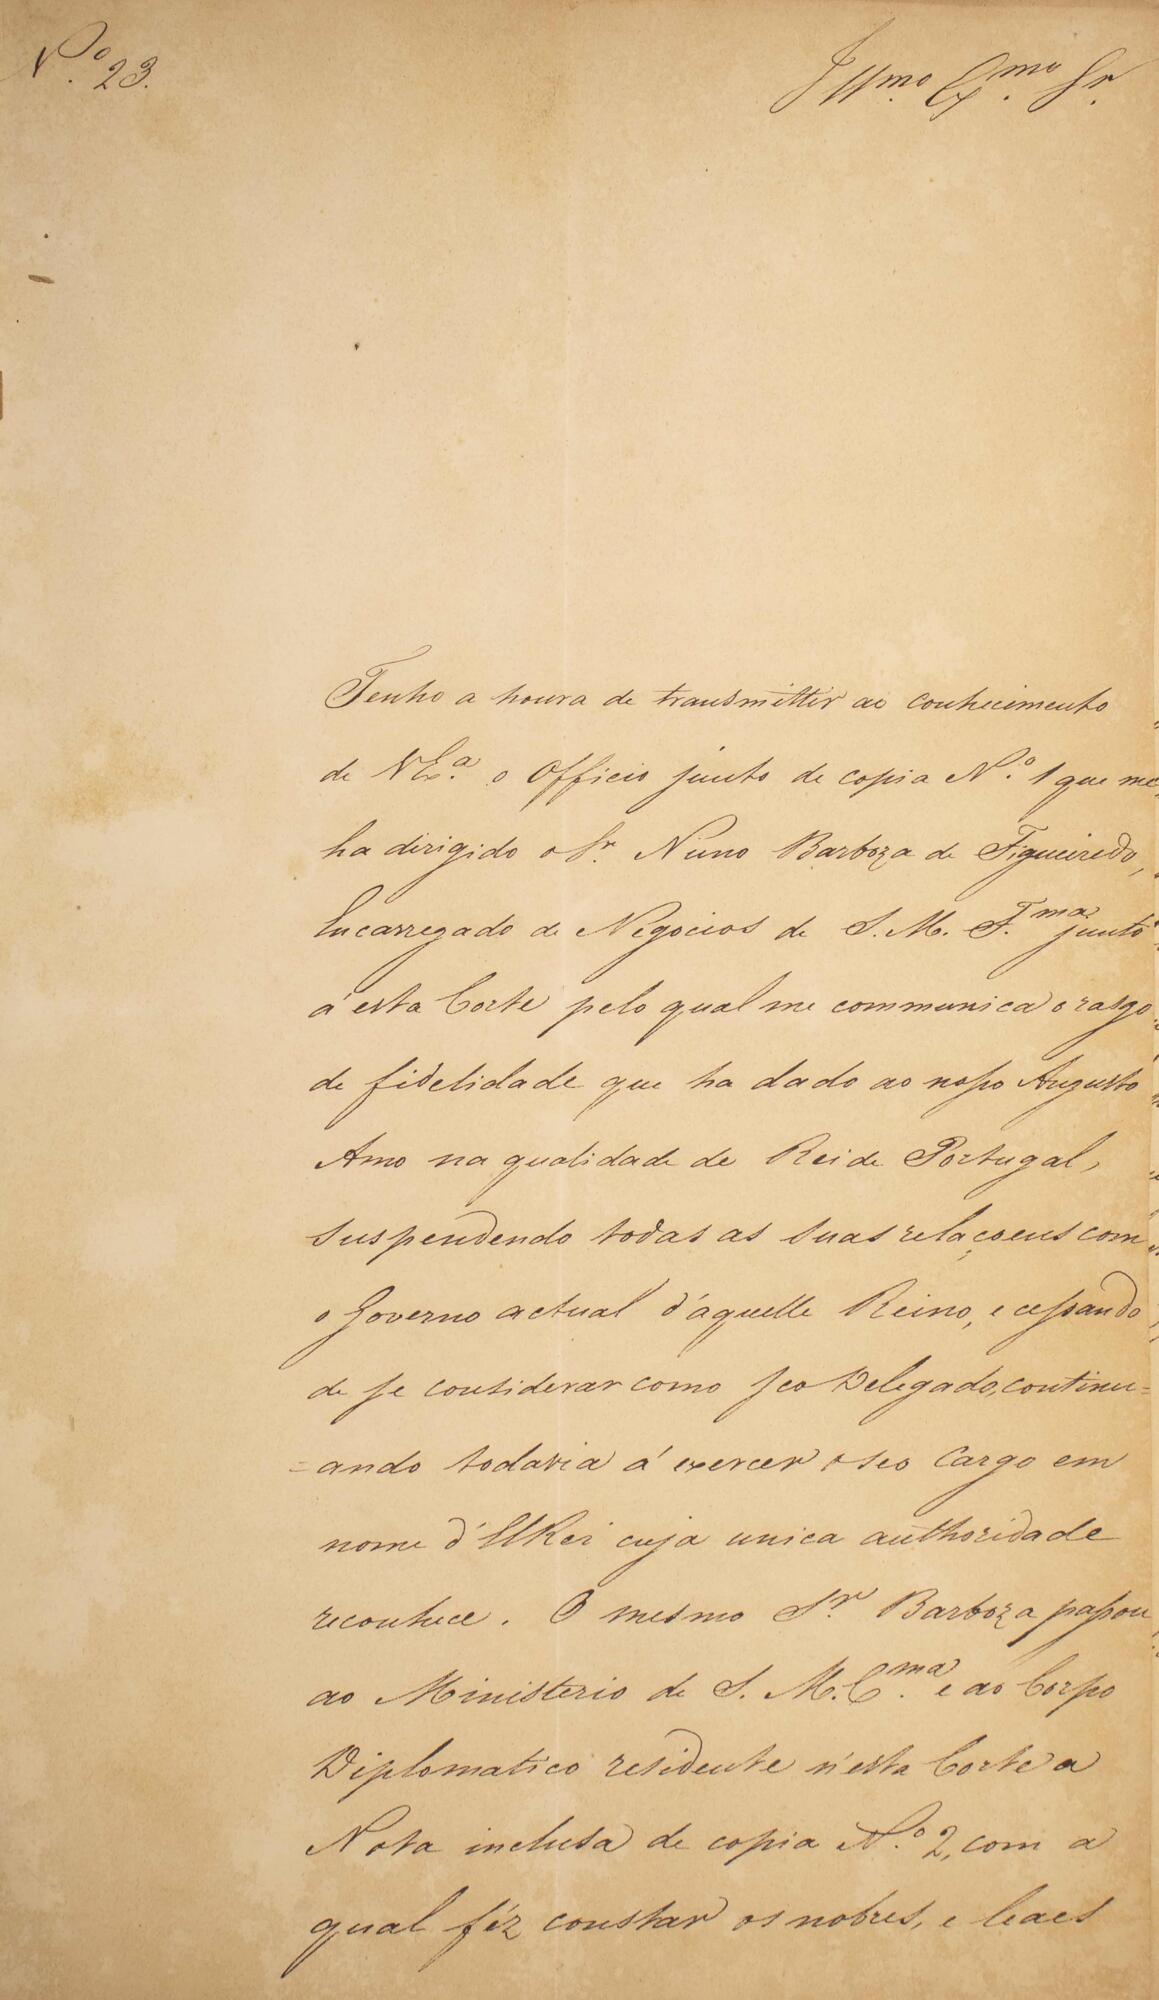 N.º 23.
Illmo. Exmo. Sr.
Tenho a honra de transmittir ao conhecimento
de V Ex.ª o Officio junto de copia N.º 1 que me
ha dirigido o Sr. Nuno Barboza de Figueiredo,
Encarregado de Negocios de S. M. F.ma junto
á esta Corte pelo qual me communica o rasgo
de fidelidade que ha dado ao nosso Augusto
Amo na qualidade de Rei de Portugal,
suspendendo todas as suas relaçoens com
o Governo actual d'aquelle Reino, e cessando
de se considerar como seo Delegado, continu=
=ando todavia á exercer o seo Cargo em
nome d'ElRei cuja unica authoridade
reconhece. O mesmo Sr. Barboza passou
ao Ministerio de S. M. C.ma e ao Corpo
Diplomatico residente n'esta Corte a
Nota inclusa de copia N.º 2, com a
qual féz constar os nobres, e leaes